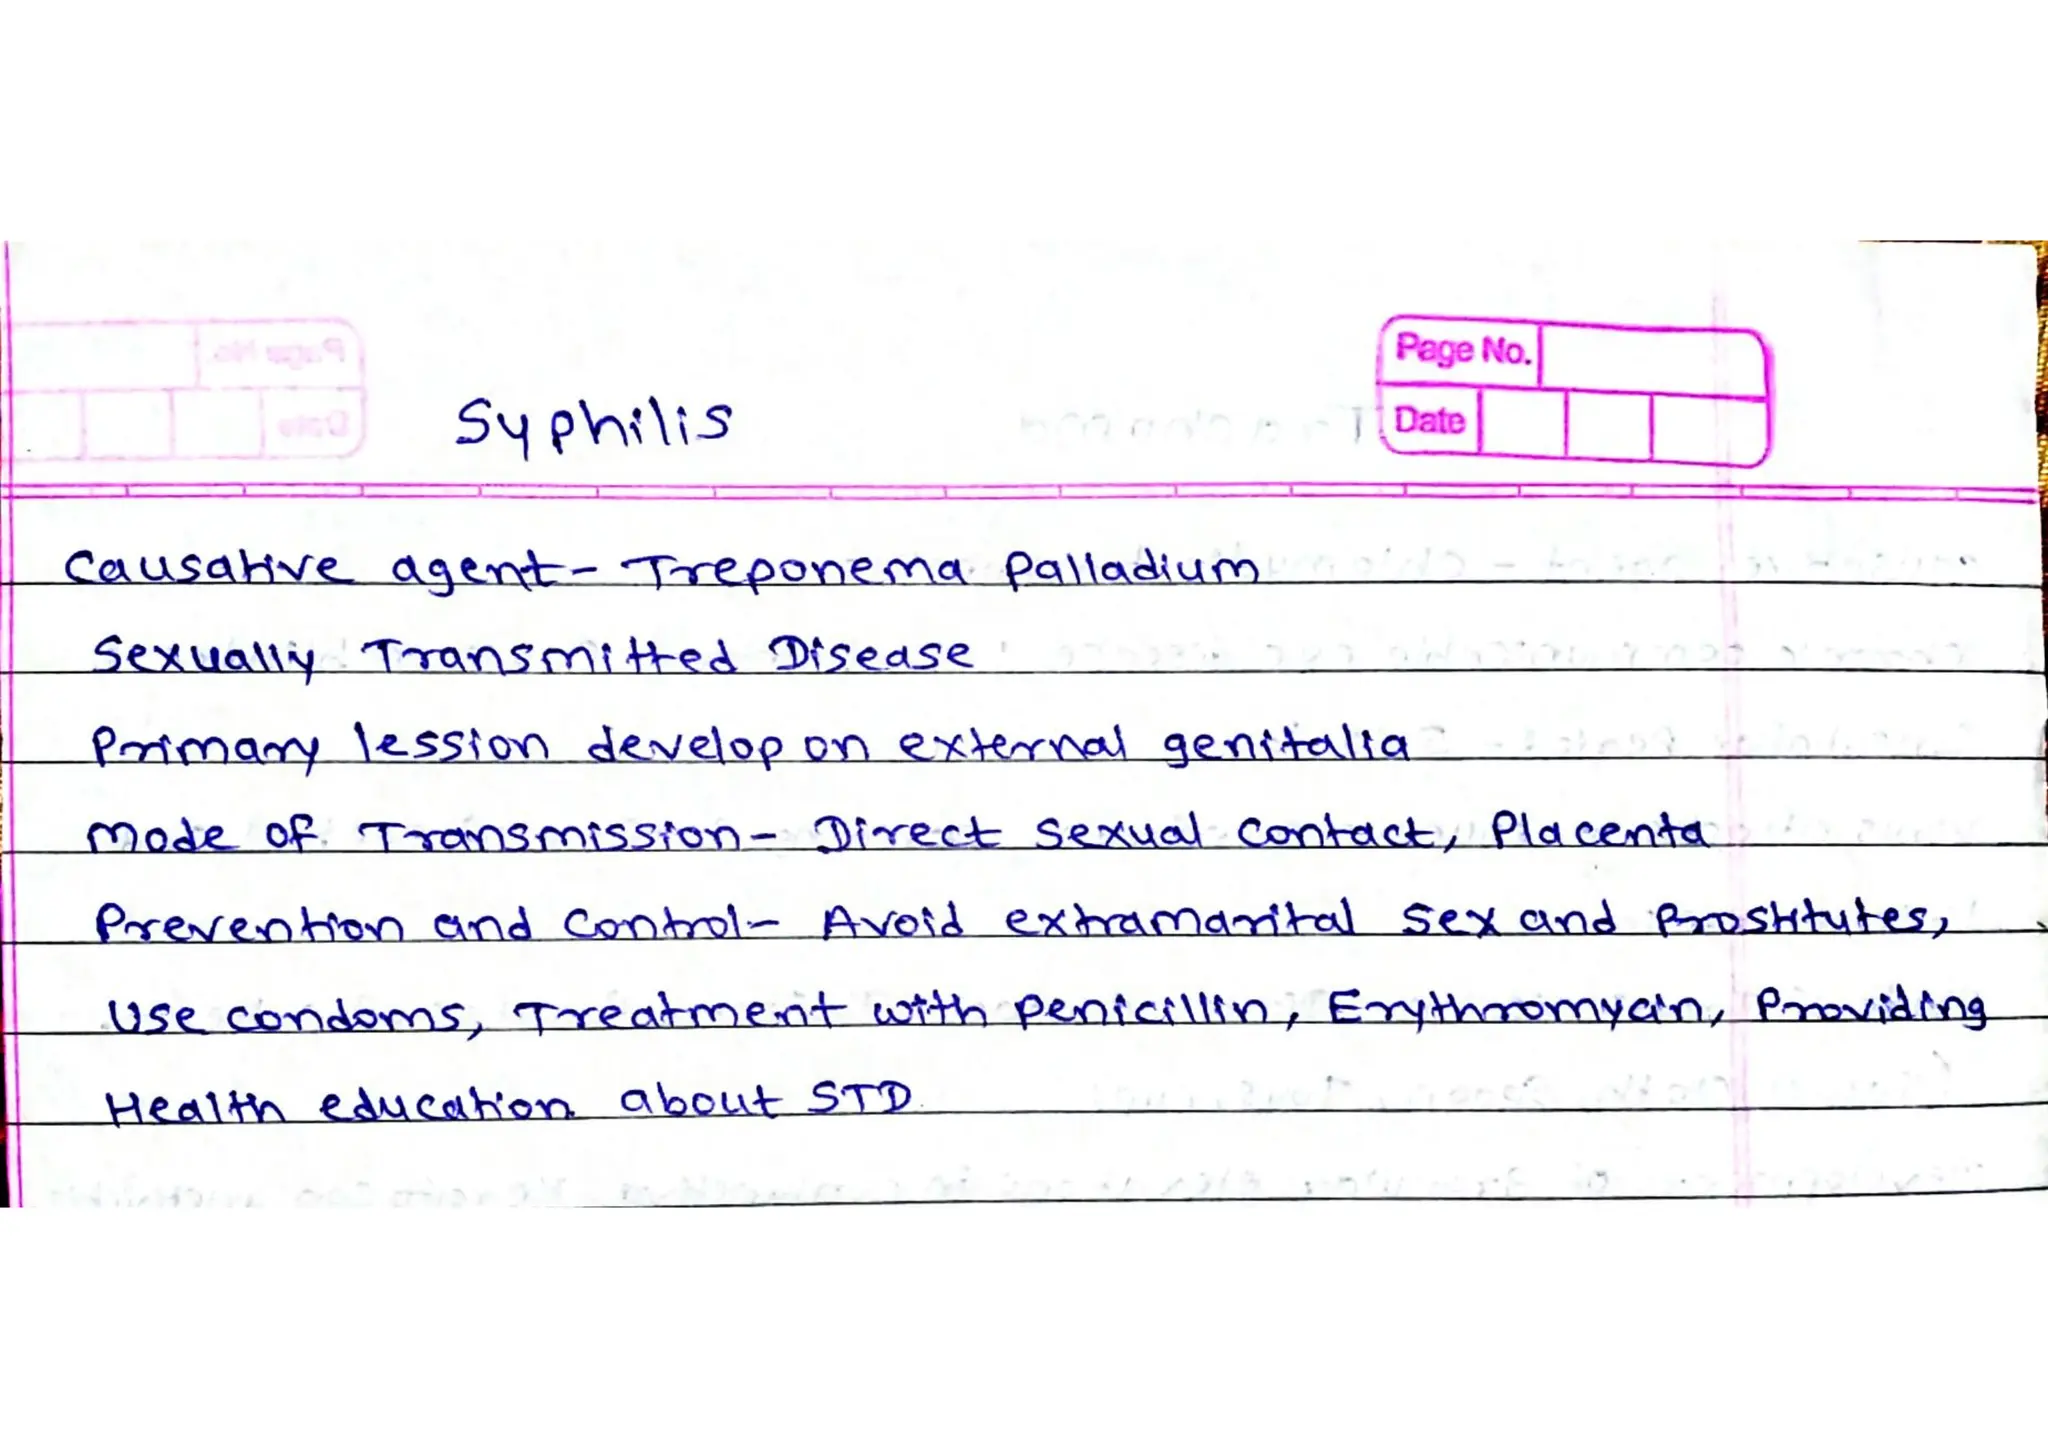 Page No.
Date
Syphilis
Causative agent- Treponema Palladium
Sexually Transmitted Disease
Primary lession develop on external genitalia
Mode of Transmission- Direct Sexual Contact, Placenta
Prevention and Control- Avoid extramarital Sex and Prostitutes,
Use condoms, Treatment with Penicillin, Erythromycin, Providing
Health education about STD.